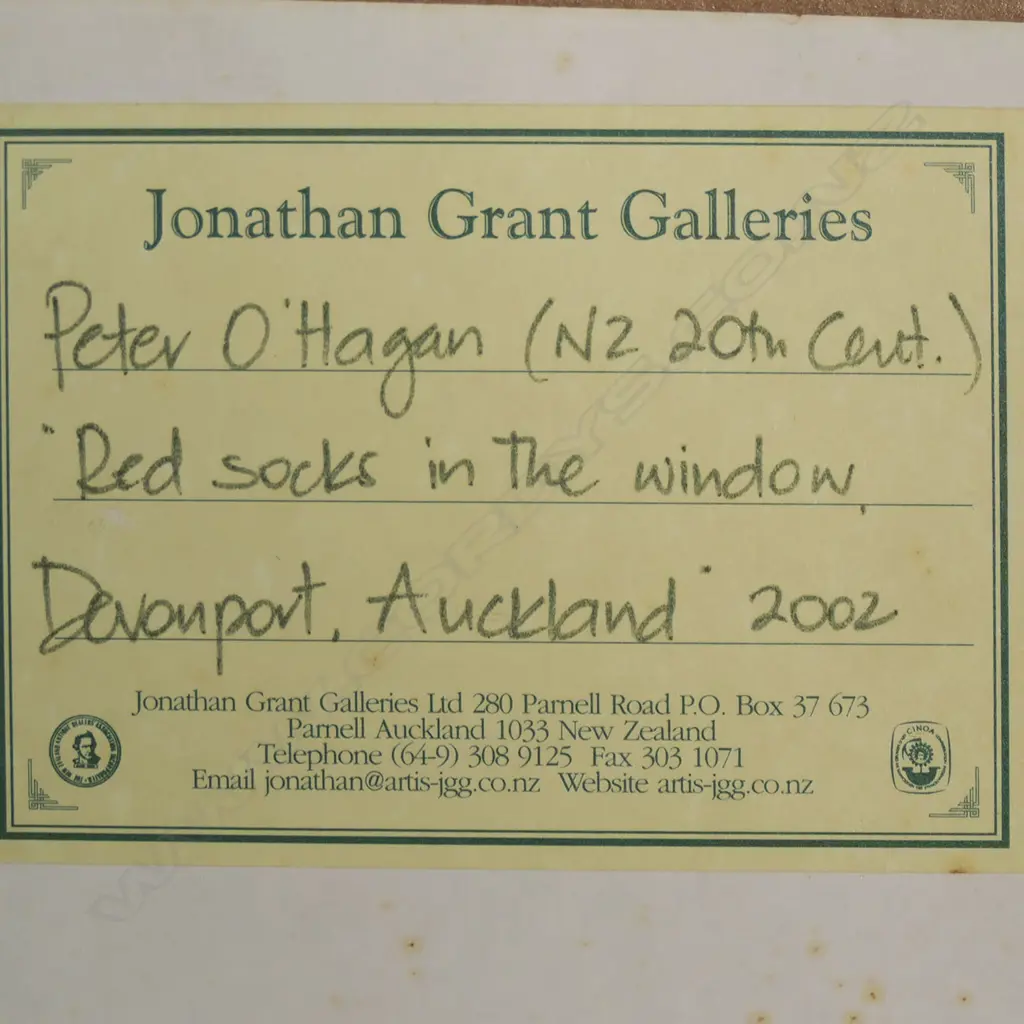 Jonathan Grant Galleries
Peter O'Hagan (NZ 20th Cent.)
"Red socks in the window,
Devonport, Auckland" 2002
Jonathan Grant Galleries Ltd 280 Parnell Road P.O. Box 37 673
Parnell Auckland 1033 New Zealand
Telephone (64-9) 308 9125 Fax 303 1071
Email jonathan@artis-jgg.co.nz Website artis-jgg.co.nz
CINOA